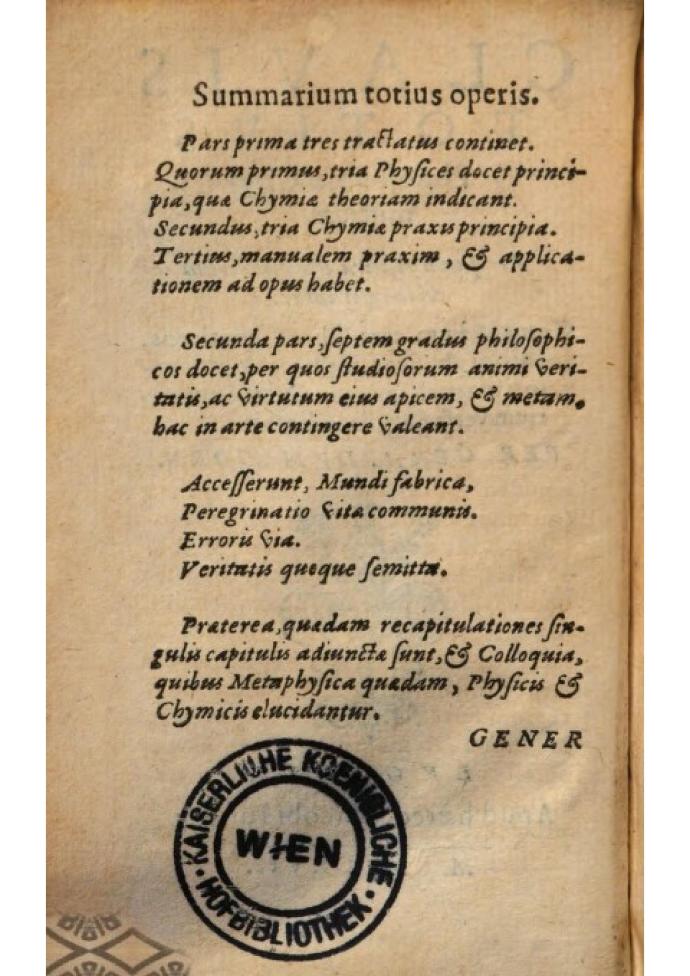 Summarium totius operis.
Pars prima tres tractatus continet.
Quorum primus, tria Physices docet princi-
pia, quæ Chymiæ theoriam indicant.
Secundus, tria Chymiæ praxis principia.
Tertius, manualem praxim, & applica-
tionem ad opus habet.
Secunda pars, septem gradus philosophi-
cos docet, per quos studiosorum animi veri-
tatis, ac virtutum eius apicem, & metam.
hac in arte contingere valeant.
Accesserunt, Mundi fabrica,
Peregrinatio vitæ communis.
Erroris via.
Veritatis queque semitta.
Præterea, quædam recapitulationes sin-
gulis capitulis adiunctæ sunt, & Colloquia,
quibus Metaphysica quædam, Physicis &
Chymicis elucidantur.
GENER
KAISERLICHE KOENIGLICHE
WIEN
HOFBIBLIOTHEK